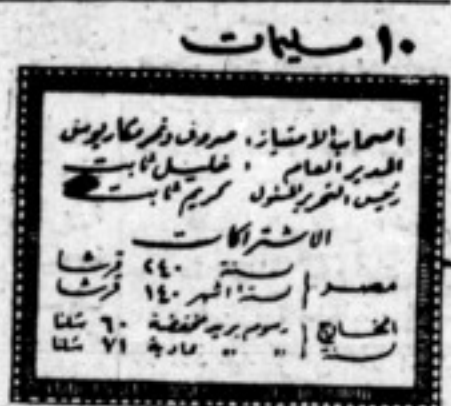 ١٠ مليمات
أصحاب الامتياز: صروف ونمر ومكاريوس
المدير العام : خليل ثابت
رئيس التحرير المسئول كريم ثابت
الاشتراكات
مصر { سنة ٢٤٠ قرشا
ستة اشهر ١٤٠ قرشا
الخارج { رسوم بريد مخفضة ٦٠ شلنا
سنة ,, ,, عادية ٧١ شلنا